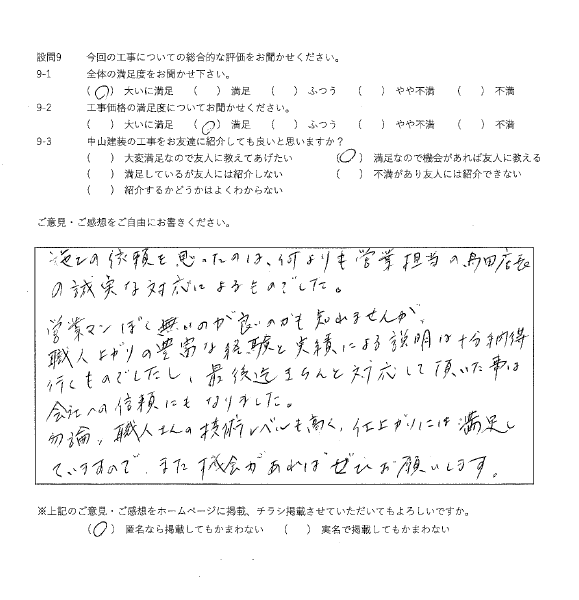 設問9 今回の工事についての総合的な評価をお聞かせください。
9-1 全体の満足度をお聞かせ下さい。
(○) 大いに満足 ( ) 満足 ( ) ふつう ( ) やや不満 ( ) 不満
9-2 工事価格の満足度についてお聞かせください。
( ) 大いに満足 (○) 満足 ( ) ふつう ( ) やや不満 ( ) 不満
9-3 中山建装の工事をお友達に紹介しても良いと思いますか？
( ) 大変満足なので友人に教えてあげたい (○) 満足なので機会があれば友人に教える
( ) 満足しているが友人には紹介しない ( ) 不満があり友人には紹介できない
( ) 紹介するかどうかはよくわからない
ご意見・ご感想をご自由にお書きください。
施工の依頼を思ったのは、何よりも営業担当の島田店長
の誠実な対応によるものでした。
営業マンぽく無いのが良いのかも知れませんが、
職人上がりの豊富な経験と実績による説明は十分納得
行くものでしたし、最後迄きちんと対応して頂いた事は
会社への信頼にもなりました。
勿論、職人さんの技術レベルも高く、仕上がりには満足し
ていますので、また機会があればぜひお願いします。
※上記のご意見・ご感想をホームページに掲載、チラシ掲載させていただいてもよろしいですか。
(○) 匿名なら掲載してもかまわない ( ) 実名で掲載してもかまわない